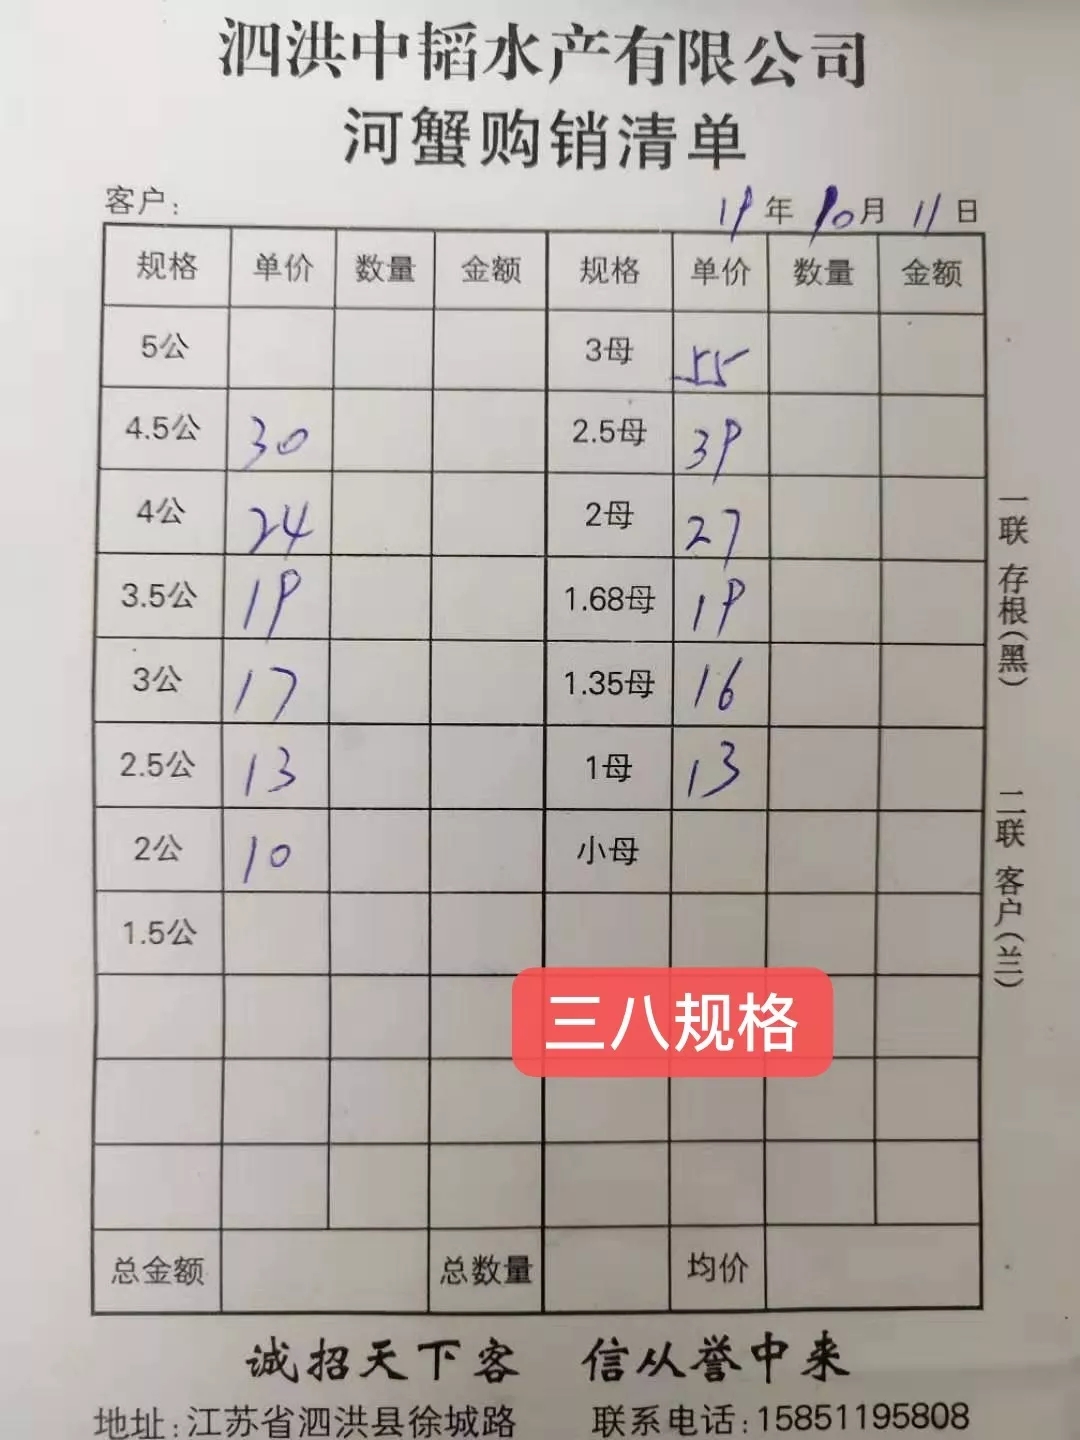 泗洪中韬水产有限公司
河蟹购销清单
客户： 19年10月11日
规格 单价 数量 金额 规格 单价 数量 金额
5公 3母 55
4.5公 30 2.5母 39
4公 24 2母 27
3.5公 19 1.68母 19
3公 17 1.35母 16
2.5公 13 1母 13
2公 10 小母
1.5公
三八规格
总金额 总数量 均价
一联 存根(黑)
二联 客户(兰)
诚招天下客 信从誉中来
地址:江苏省泗洪县徐城路 联系电话:15851195808